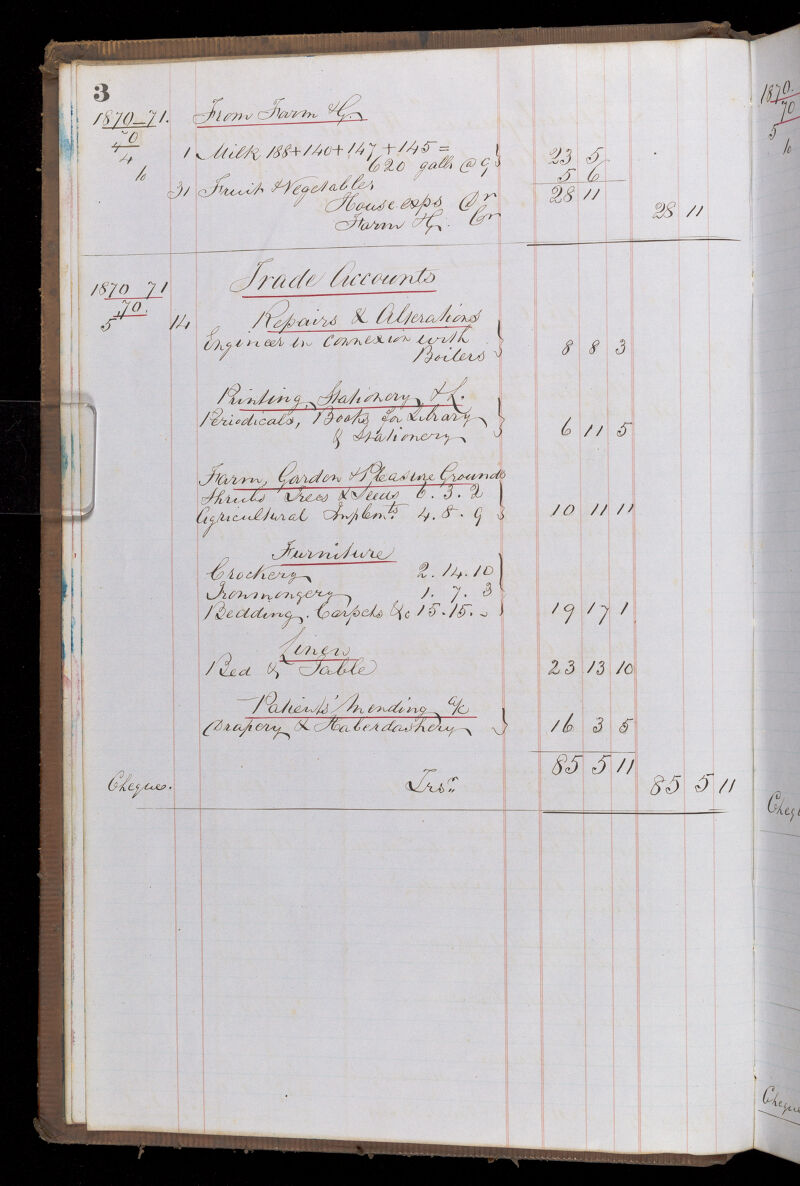 3
1870_71. From Farm &c
70
4
4
to 1 Milk 188+140+147+145=
620 galls @ 9d 23 5
31 Fruit & Vegetables 5 6
House exps Dr 28 11
Farm &c. Cr 28 11
1870 71 Trade Accounts
70.
5 14 Repairs & Alterations
Engineer in connexion with
Boilers 8 8 3
Printing, Stationery, &c.
Periodicals, Books for Library
& Stationery 6 11 5
Farm, Garden & Pleasure Grounds
Shrubs Trees & Seeds 6.3.2
Agricultural Implemts. 4.8.9 10 11 11
Furniture
Crockery 2.14.10
Ironmongery 1.7.3
Bedding. Carpets &c 15.15.- 19 17 1
Linen
Bed & Table 23 13 10
Patients' Mending a/c
Drapery & Haberdashery 16 3 5
85 5 11
Cheque. Trsr. 85 5 11
1870.
70
5
to
Cheq
Cheque